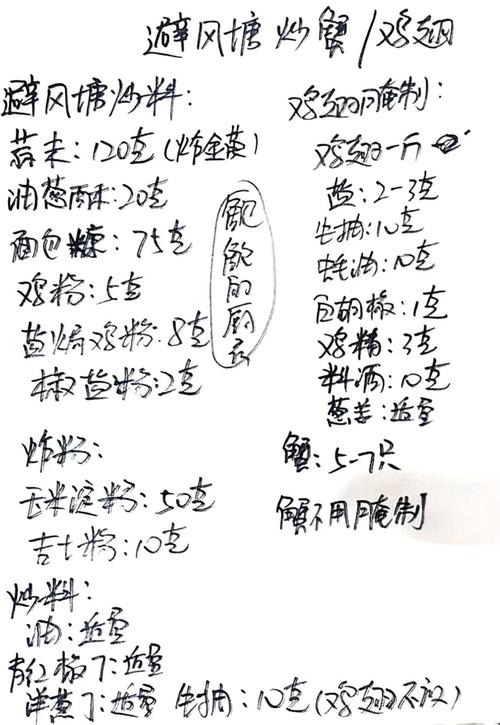 避风塘炒蟹/鸡翅
避风塘炒料:
蒜末:120克(炸金黄)
油葱酥:20克
面包糠:75克
鸡粉:5克
盐焗鸡粉:8克
椒盐粉:2克
炸粉:
玉米淀粉:50克
吉士粉:10克
炒料:
油:适量
青红椒丁:适量
洋葱丁:适量 生抽:10克(鸡翅不放)
的厨房
鸡翅腌制:
鸡翅一斤
盐:2-3克
生抽:10克
蚝油:10克
白胡椒:1克
鸡精:3克
料酒:10克
葱姜:适量
蟹:5-7只
蟹不用腌制